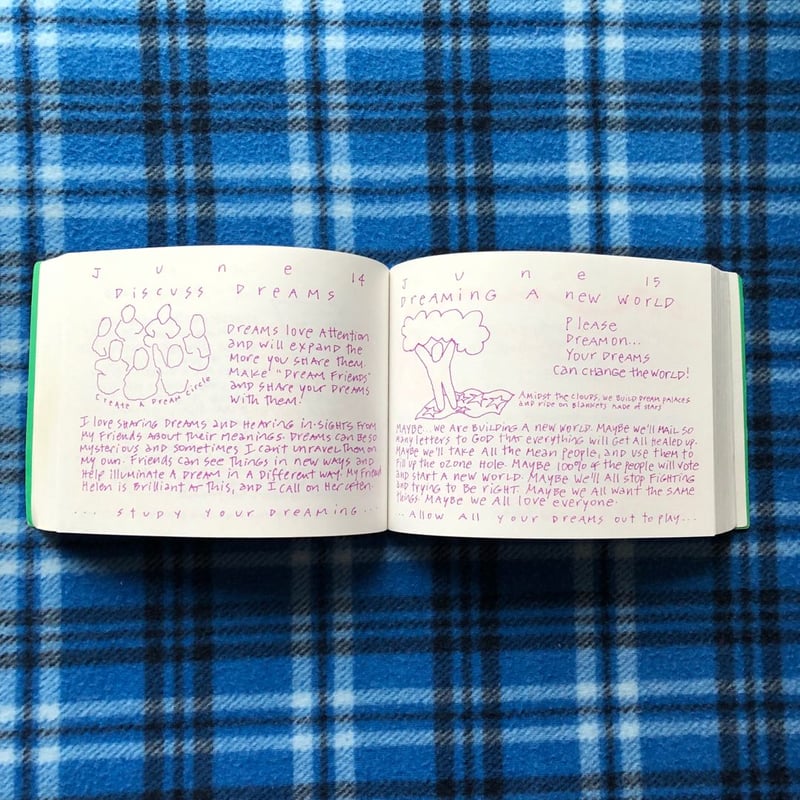 June 14
Discuss Dreams
Dreams love Attention
and will expand the
More you share them.
Make "Dream Friends"
and share your dreams
with them!
Create A Dream Circle
I love sharing dreams and hearing in-sights from
my friends about their meanings. Dreams can be so
mysterious and sometimes I can't unravel them on
my own. Friends can see things in new ways and
help illuminate a dream in a different way. My friend
Helen is brilliant at this, and I call on her often.
... study your dreaming...
June 15
Dreaming A new world
Please
Dream on...
Your dreams
can change the world!
Amidst the clouds, we build dream palaces
and ride on blankets made of stars
Maybe... we are building a new world. Maybe we'll mail so
many letters to God that everything will get all healed up.
Maybe we'll take all the mean people, and use them to
fill up the ozone hole. Maybe 100% of the people will vote
and start a new world. Maybe we'll all stop fighting
and trying to be right. Maybe we all want the same
things. Maybe we all love everyone.
...allow all your dreams out to play...